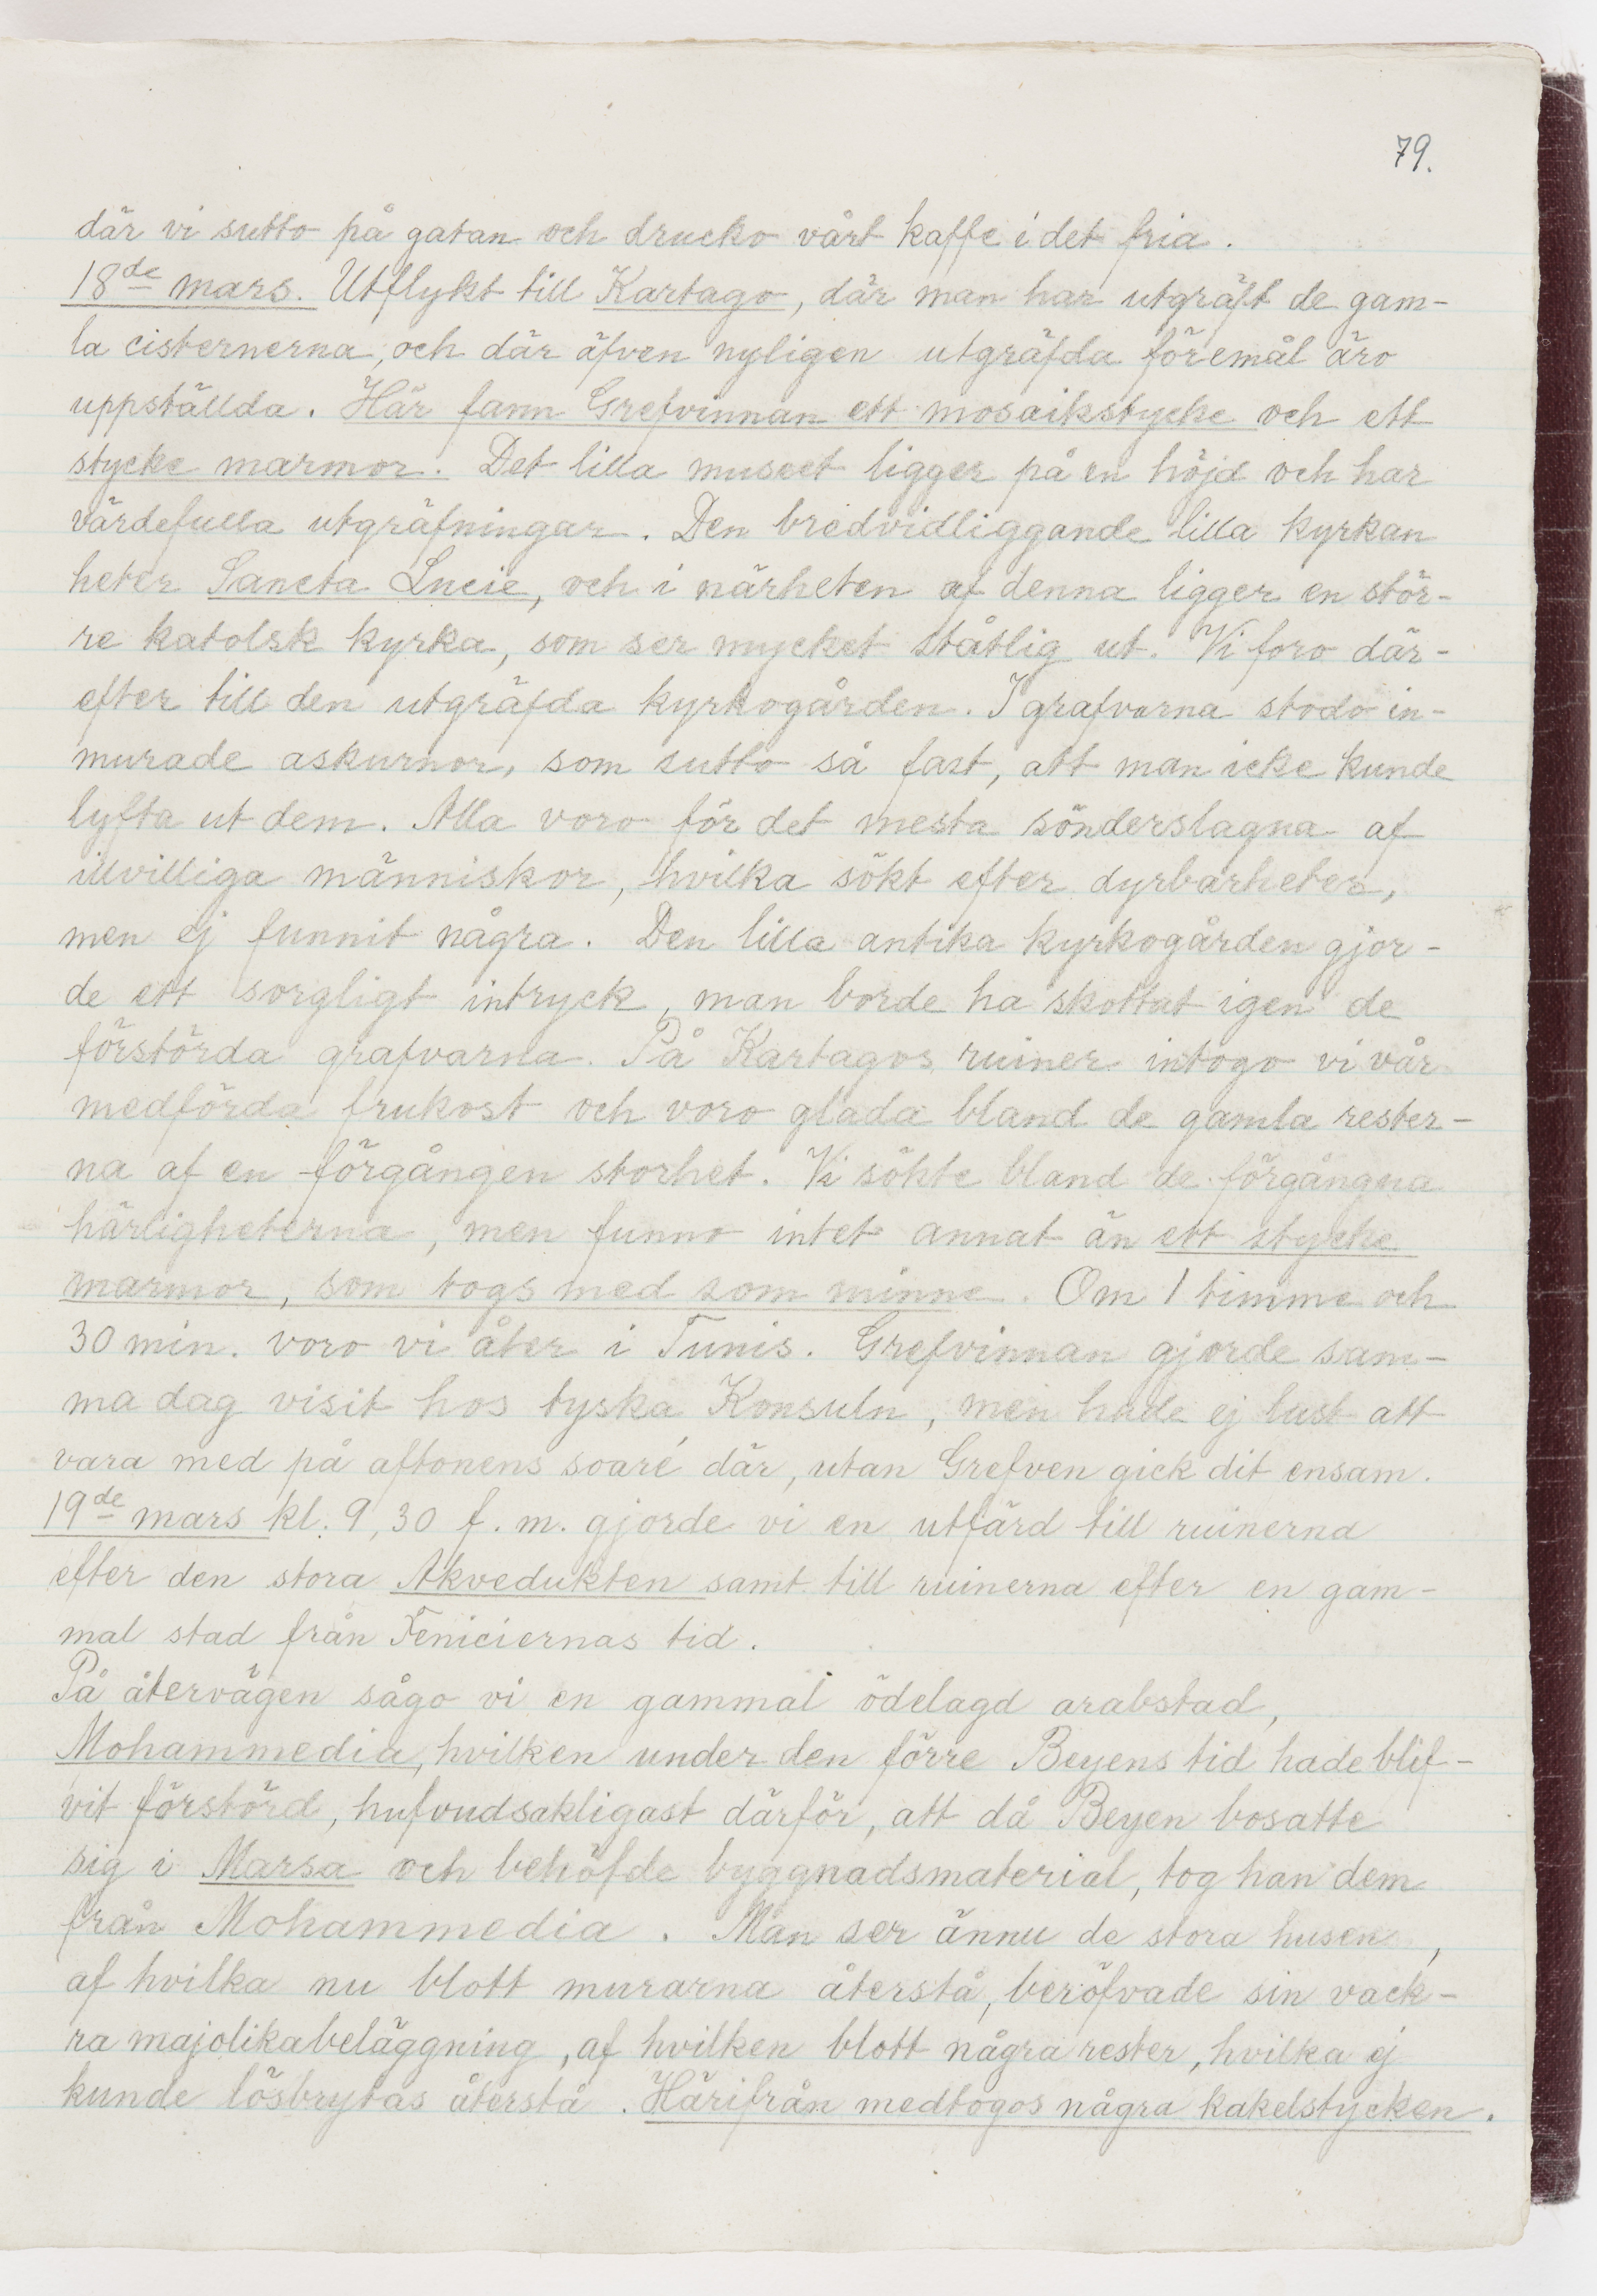 79.
där vi sutto på gatan och drucko vårt kaffe i det fria.
18de mars. Utflykt till Kartago, där man har utgräft de gam-
la cisternerna, och där äfven nyligen utgräfda föremål äro
uppställda. Här fann Grefvinnan ett mosaikstycke och ett
stycke marmor. Det lilla museet ligger på en höjd och har
värdefulla utgräfningar. Den bredvidliggande lilla kyrkan
heter Sancta Lucie, och i närheten af denna ligger en stör-
re katolsk kyrka, som ser mycket ståtlig ut. Vi foro där-
efter till den utgräfda kyrkogården. I grafvarna stodo in-
murade askurnor, som sutto så fast, att man icke kunde
lyfta ut dem. Alla voro för det mesta sönderslagna af
illvilliga människor, hvilka sökt efter dyrbarheter,
men ej funnit några. Den lilla antika kyrkogården gjor-
de ett sorgligt intryck, man borde ha skottat igen de
förstörda grafvarna. På Kartagos ruiner intogo vi vår
medförda frukost och voro glada bland de gamla rester-
na af en förgången storhet. Vi sökte bland de förgångna
härligheterna, men funno intet annat än ett stycke
marmor, som togs med som minne. Om 1 timme och
30 min. voro vi åter i Tunis. Grefvinnan gjorde sam-
ma dag visit hos tyska Konsuln, men hade ej lust att
vara med på aftonens soaré där, utan Grefven gick dit ensam.
19de mars kl. 9,30 f.m. gjorde vi en utfärd till ruinerna
efter den stora Akvedukten samt till ruinerna efter en gam-
mal stad från Feniciernas tid.
På återvägen sågo vi en gammal ödelagd arabstad,
Mohammedia, hvilken under den förre Beyens tid hade blif-
vit förstörd, hufvudsakligast därför, att då Beyen bosatte
sig i Marsa och behöfde byggnadsmaterial, tog han dem
från Mohammedia. Man ser ännu de stora husen,
af hvilka nu blott murarna återstå, beröfvade sin vack-
ra majolikabeläggning, af hvilken blott några rester, hvilka ej
kunde lösbrytas återstå. Härifrån medtogos några kakelstycken.